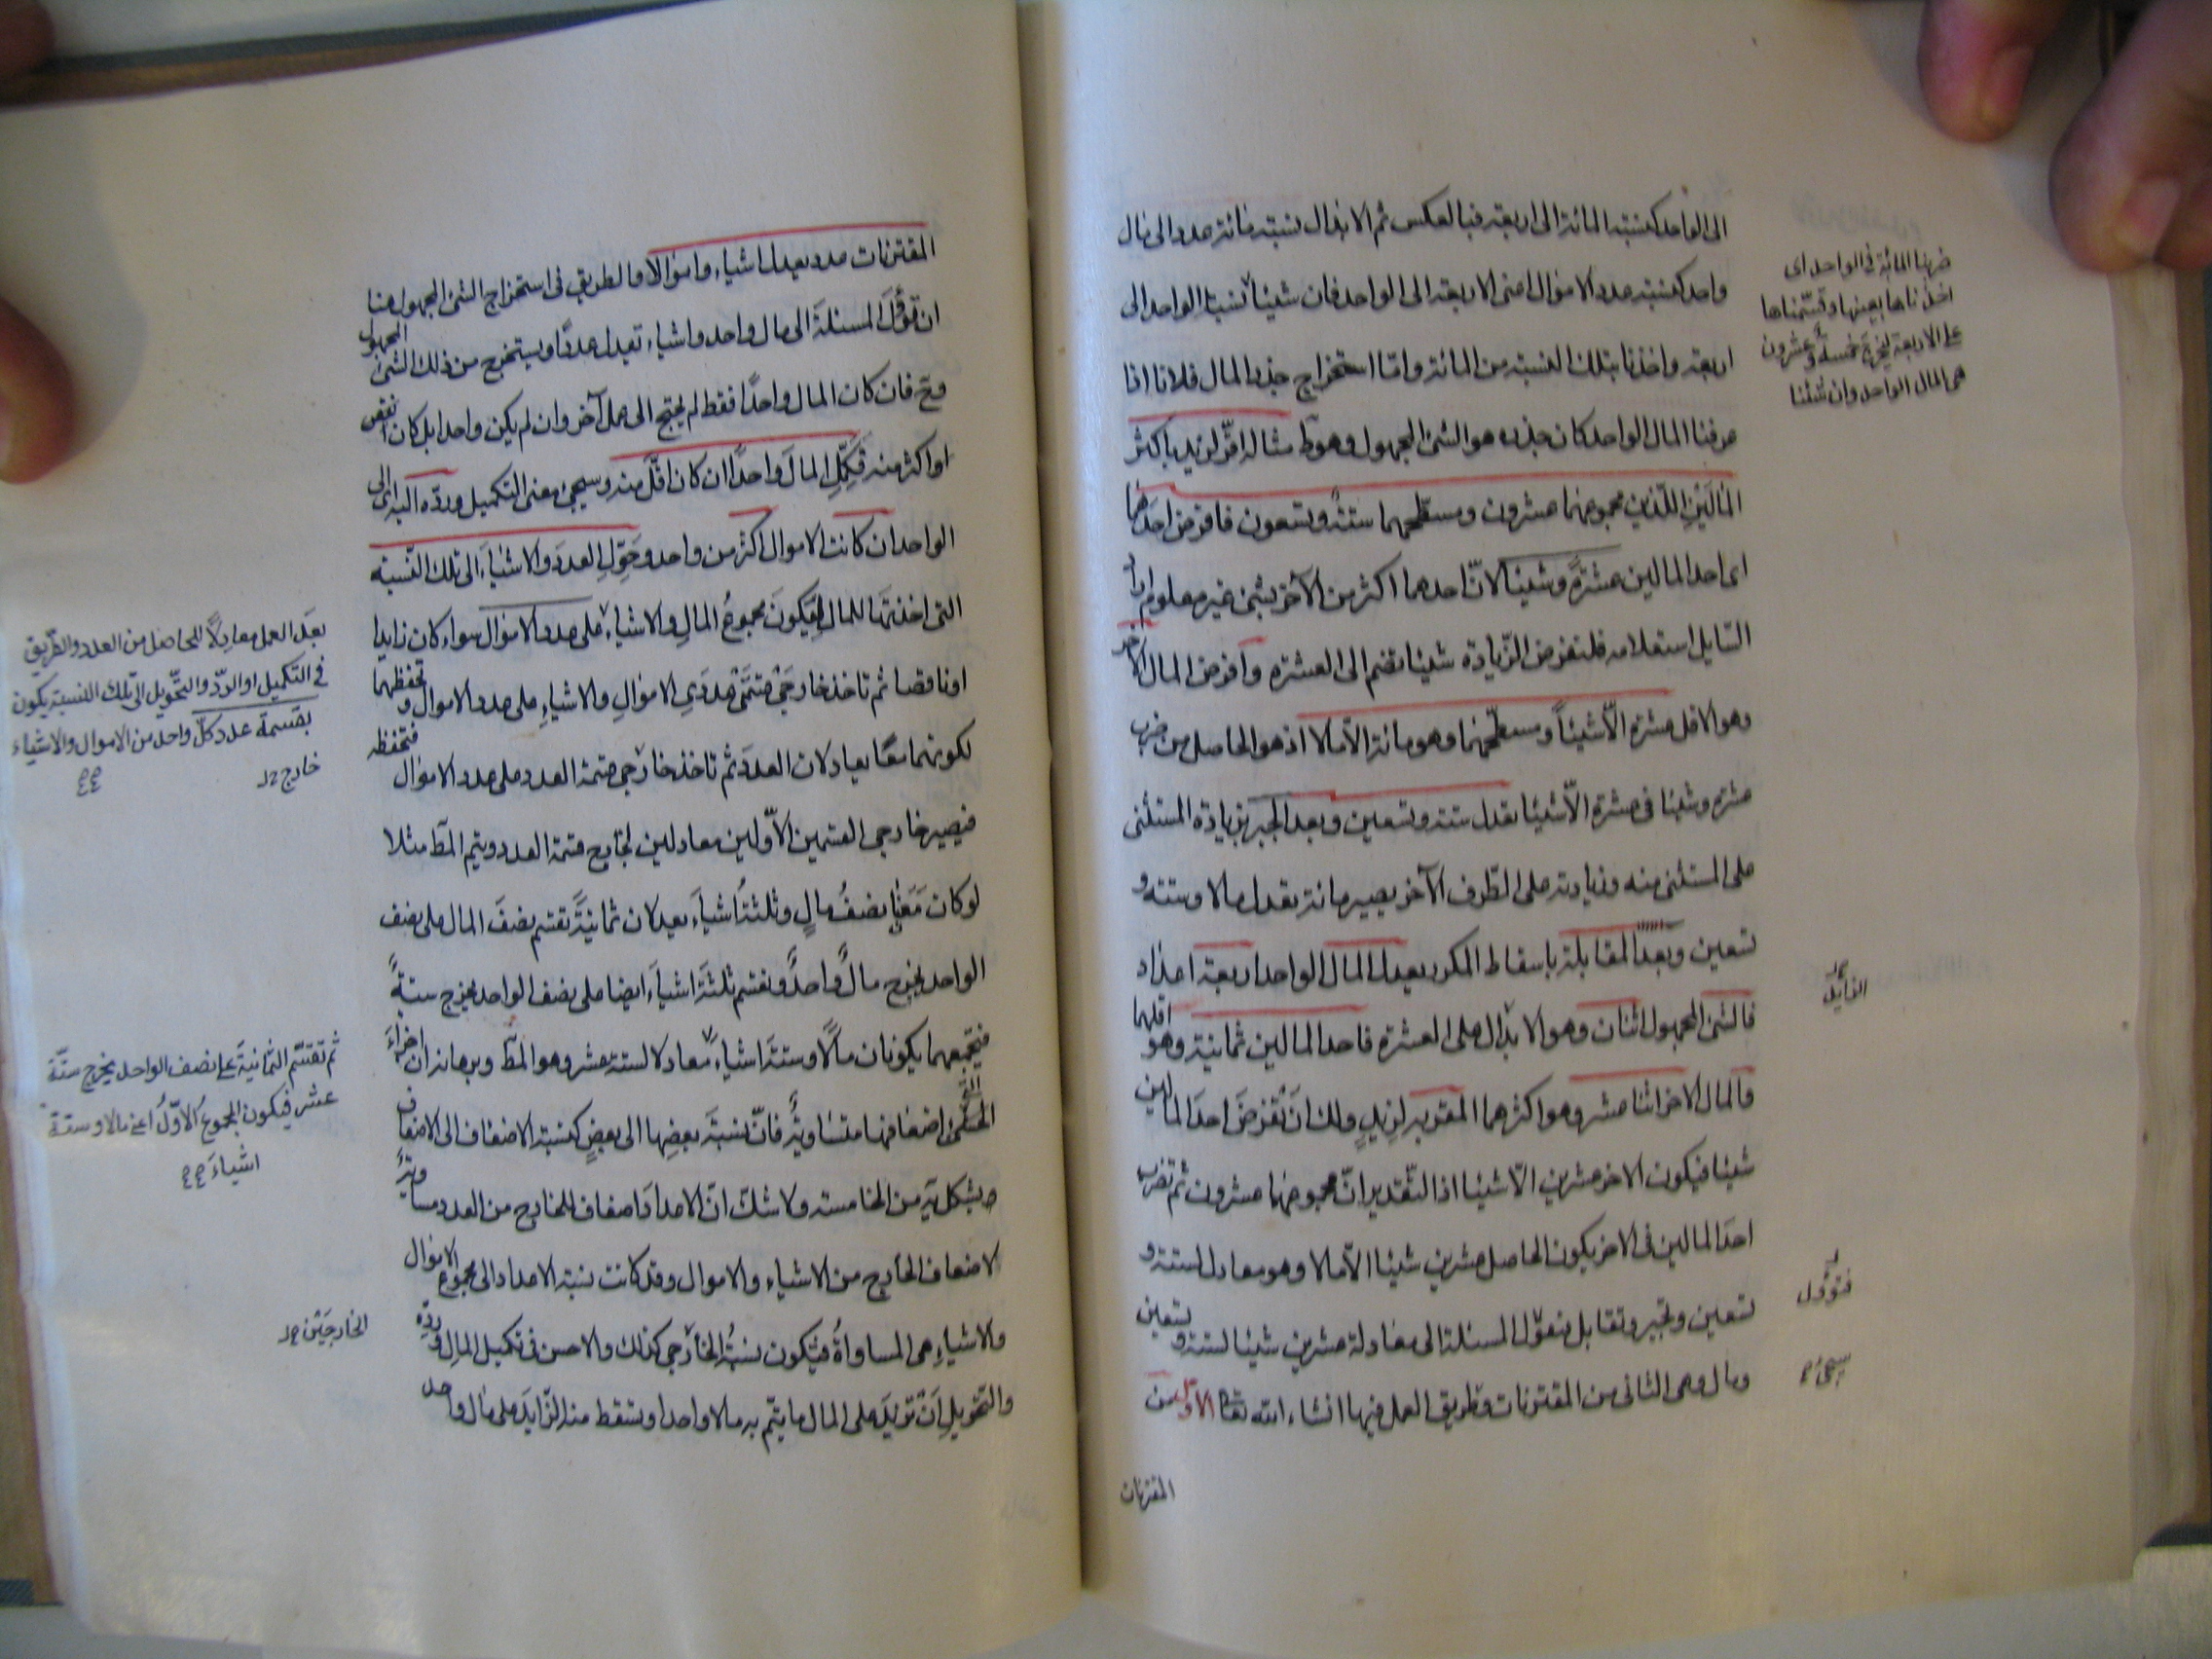 الى الواحد كنسبة المائة الى اربعة فبا لعكس ثم الابدال نسبة مائة عدد الى مال
واحد كنسبة عدد الاموال اعنى الاربعة الى الواحد فان شئنا نسبنا الواحد الى
اربعة واخذنا بتلك النسبة من المائة واما استخراج جذر المال فلانا اذا
عرفنا المال الواحد كان جذره هو الشئ المجهول وهو المط مثاله اقر لزيد باكثر
المالَيْنِ اللّذين مجموعهما عشرون ومسطّحهما ستّة وتسعون فافرض احدهما
اى احد المالين عشرةً وشيئا لانّ احدهما اكثر من الآخر بشئ غير معلوم اراد
السّايل استعلامه فلنفرض الزّيادة شيئا تضم الى العشرة وافرض المال الآخر
وهو الاقل عشرة الّا شيئاً ومسطّحهما وهو مائة الّا مالا اذ هو الحاصل من ضرب
عشرة وشيئا فى عشرة الّا شيئا تعدل ستة وتسعين وبعد الجبر بزيادة المستثنى
على المستثنى منه وزيادته على الطّرف الآخر يصير مائة تعدل مالا وستة و
تسعين وبعد المقابلة باسقاط المكرر يعدل المال الواحد اربعة اعداد
فالشئ المجهول اثنان وهو الزايد على العشرة فاحد المالين ثمانية وهو اقلهما
والمال الاخر اثنا عشر وهو اكثرهما المقر به لزيدٍ ولك ان تَفْرِضَ احدَ المالين
شيئا فيكون الاخر عشرين الّا شيئا اذ التّقدير انّ مجموعهما عشرون ثم تضرب
احدَ المالين فى الاخر يكون الحاصل عشرين شيئا الّا مالا وهو معادل لستة و
تسعين وتجبر وتقابل فتؤول المسئلة الى معادلة عشرين شيئا لستة وتسعين
ومال وهى الثانى من المقترنات وطريق العمل فيها انشاء الله تعا الاولى من
المقترنات
ضربنا المائة فى الواحد اى
اخذناها بعينها وقسّمناها
على الاربعة ليخرج خمسة وعشرون
هى المال الواحد وان شئنا
الزايد
فتؤول
سيجئ
المقترنات عدد يعدل اشياء واموالا والطريق فى استخراج الشئ المجهول هنا
ان تؤَّلَ المسئلةَ الى مال واحد واشياء تعدل عددًا ويستخرج من ذلك الشئ المجهول
وح فان كان المال واحدًا فقط لم يحتج الى عمل آخر وان لم يكن واحدا بل كان انقص
او اكثر منه فكَمِّلِ المالَ واحدًا ان كان اقلَّ منه وسيجئ معنى التكميل وردّه اليه اى الى
الواحد ان كانت الاموال اكثر من واحد وحَوِّلِ العددَ والاشياءَ الى تلك النّسبة
التى اخذتها للمال ليكونَ مجموعُ المالِ والاشياء على عدد الاموال سواء كان زايدا
او ناقصا ثم تاخذ خارجَىْ قسمَتَىْ عددَىِ الاموالِ والاشياءِ على عدد الاموال وتحفظهما
لكونهما معًا يعادلان العددَ ثم تاخذ خارجى قسمة العدد على عدد الاموال فتحفظه
فيصير خارجى القسمين الاوّلين معادلين لخارج قسمة العدد ويتم المط مثلا
لو كان مَعَنا نصفُ مالٍ وثلثةُ اشياءَ يعدلان ثمانيةً نقسم نصفَ المال على نصف
الواحد يخرج مالٌ واحدٌ ونقسم ثلثةَ اشياءَ ايضا على نصف الواحد يخرج ستةً
فنجمعهما يكونان مالًا وستةَ اشياء معادلا لستة عشر وهو المط وبرهانه ان اجزاءَ
اضعافها متساويةٌ فانّ نسبةَ بعضِها الى بعضٍ كنسبة الاضعاف الى الاضعاف
من الخامسة ولا شك انّ الاعدادَ اضعاف للخارج من العدد مساويةً
لاضعاف الخارج من الاشياء والاموال وقد كانت نسبة الاعداد الى مجموع الاموال
والاشياءِ هى المساواةُ فيكون نسبةُ الخارجى كذلك والاحسن فى تكميل المالِ وردّه
والتّحويلِ اَنْ تَزيدَ على المال ما يتّم به مالا واحدا وتسقط منه الزّايدَ على مال واحد
بعدَ العمل معادِلًا للحاصل من العدد والطّريق
فى التكميل او الردّ والتّحويل الى تلك النسبة يكون
بقسمة عدد كلّ واحد من الاموال والاشياء
خارج
ثم تقسّم الثّمانيةَ على نصف الواحد يخرج ستّة
عشر فيكون المجموعُ الاوّلُ اعنى مالا وستة
اشياءَ
الخارجَيْن